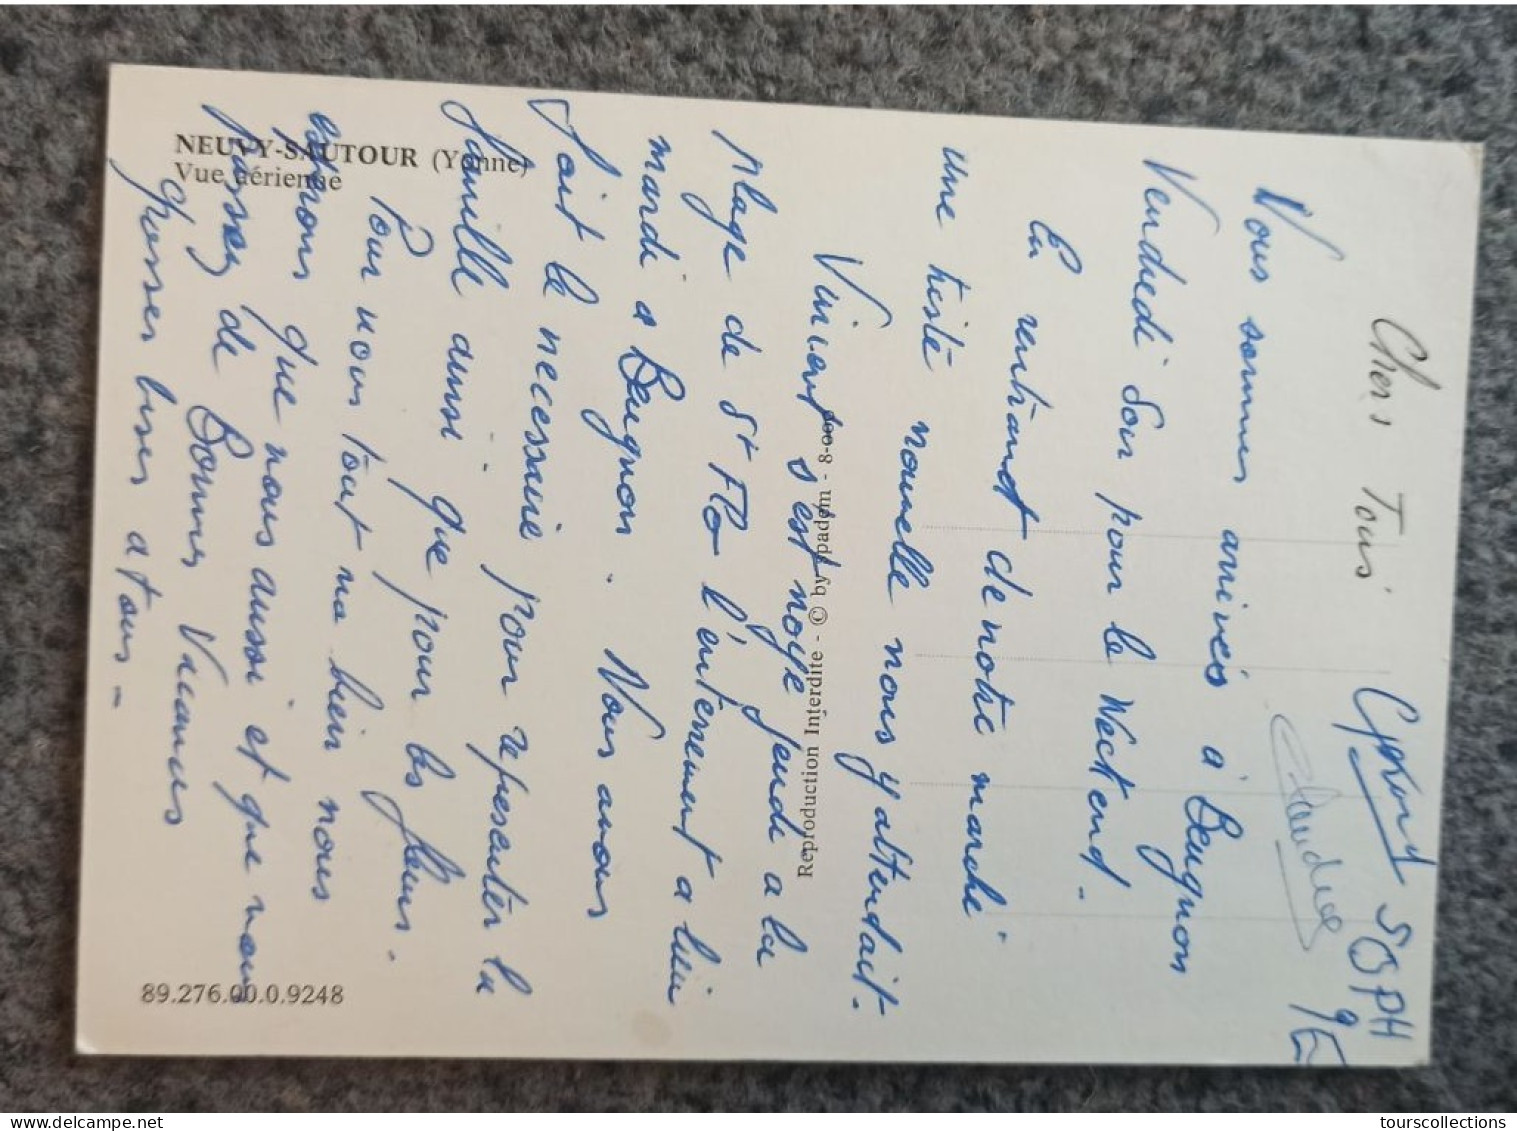 Chers Tous
Nous sommes arrivés a Beugnon
Vendredi Soir pour le Weekend.
En rentrant de notre marché
une triste nouvelle nous y attendait.
Vincent s'est noyé jeudi a la
plage de St Flo l'enterrement a lieu
mardi a Beugnon. Nous avons
fait le necessaire pour représenter la
famille ainsi que pour les fleurs.
Pour nous tout va bien nous
espérons que vous aussi et que vous
passez de Bonnes Vacances
Grosses bises a tous -
SOPHIE
NEUVY-SAUTOUR (Yonne)
Vue aérienne
Reproduction Interdite - © by spadem - 8-000
89.276.00.0.9248
tourscollections